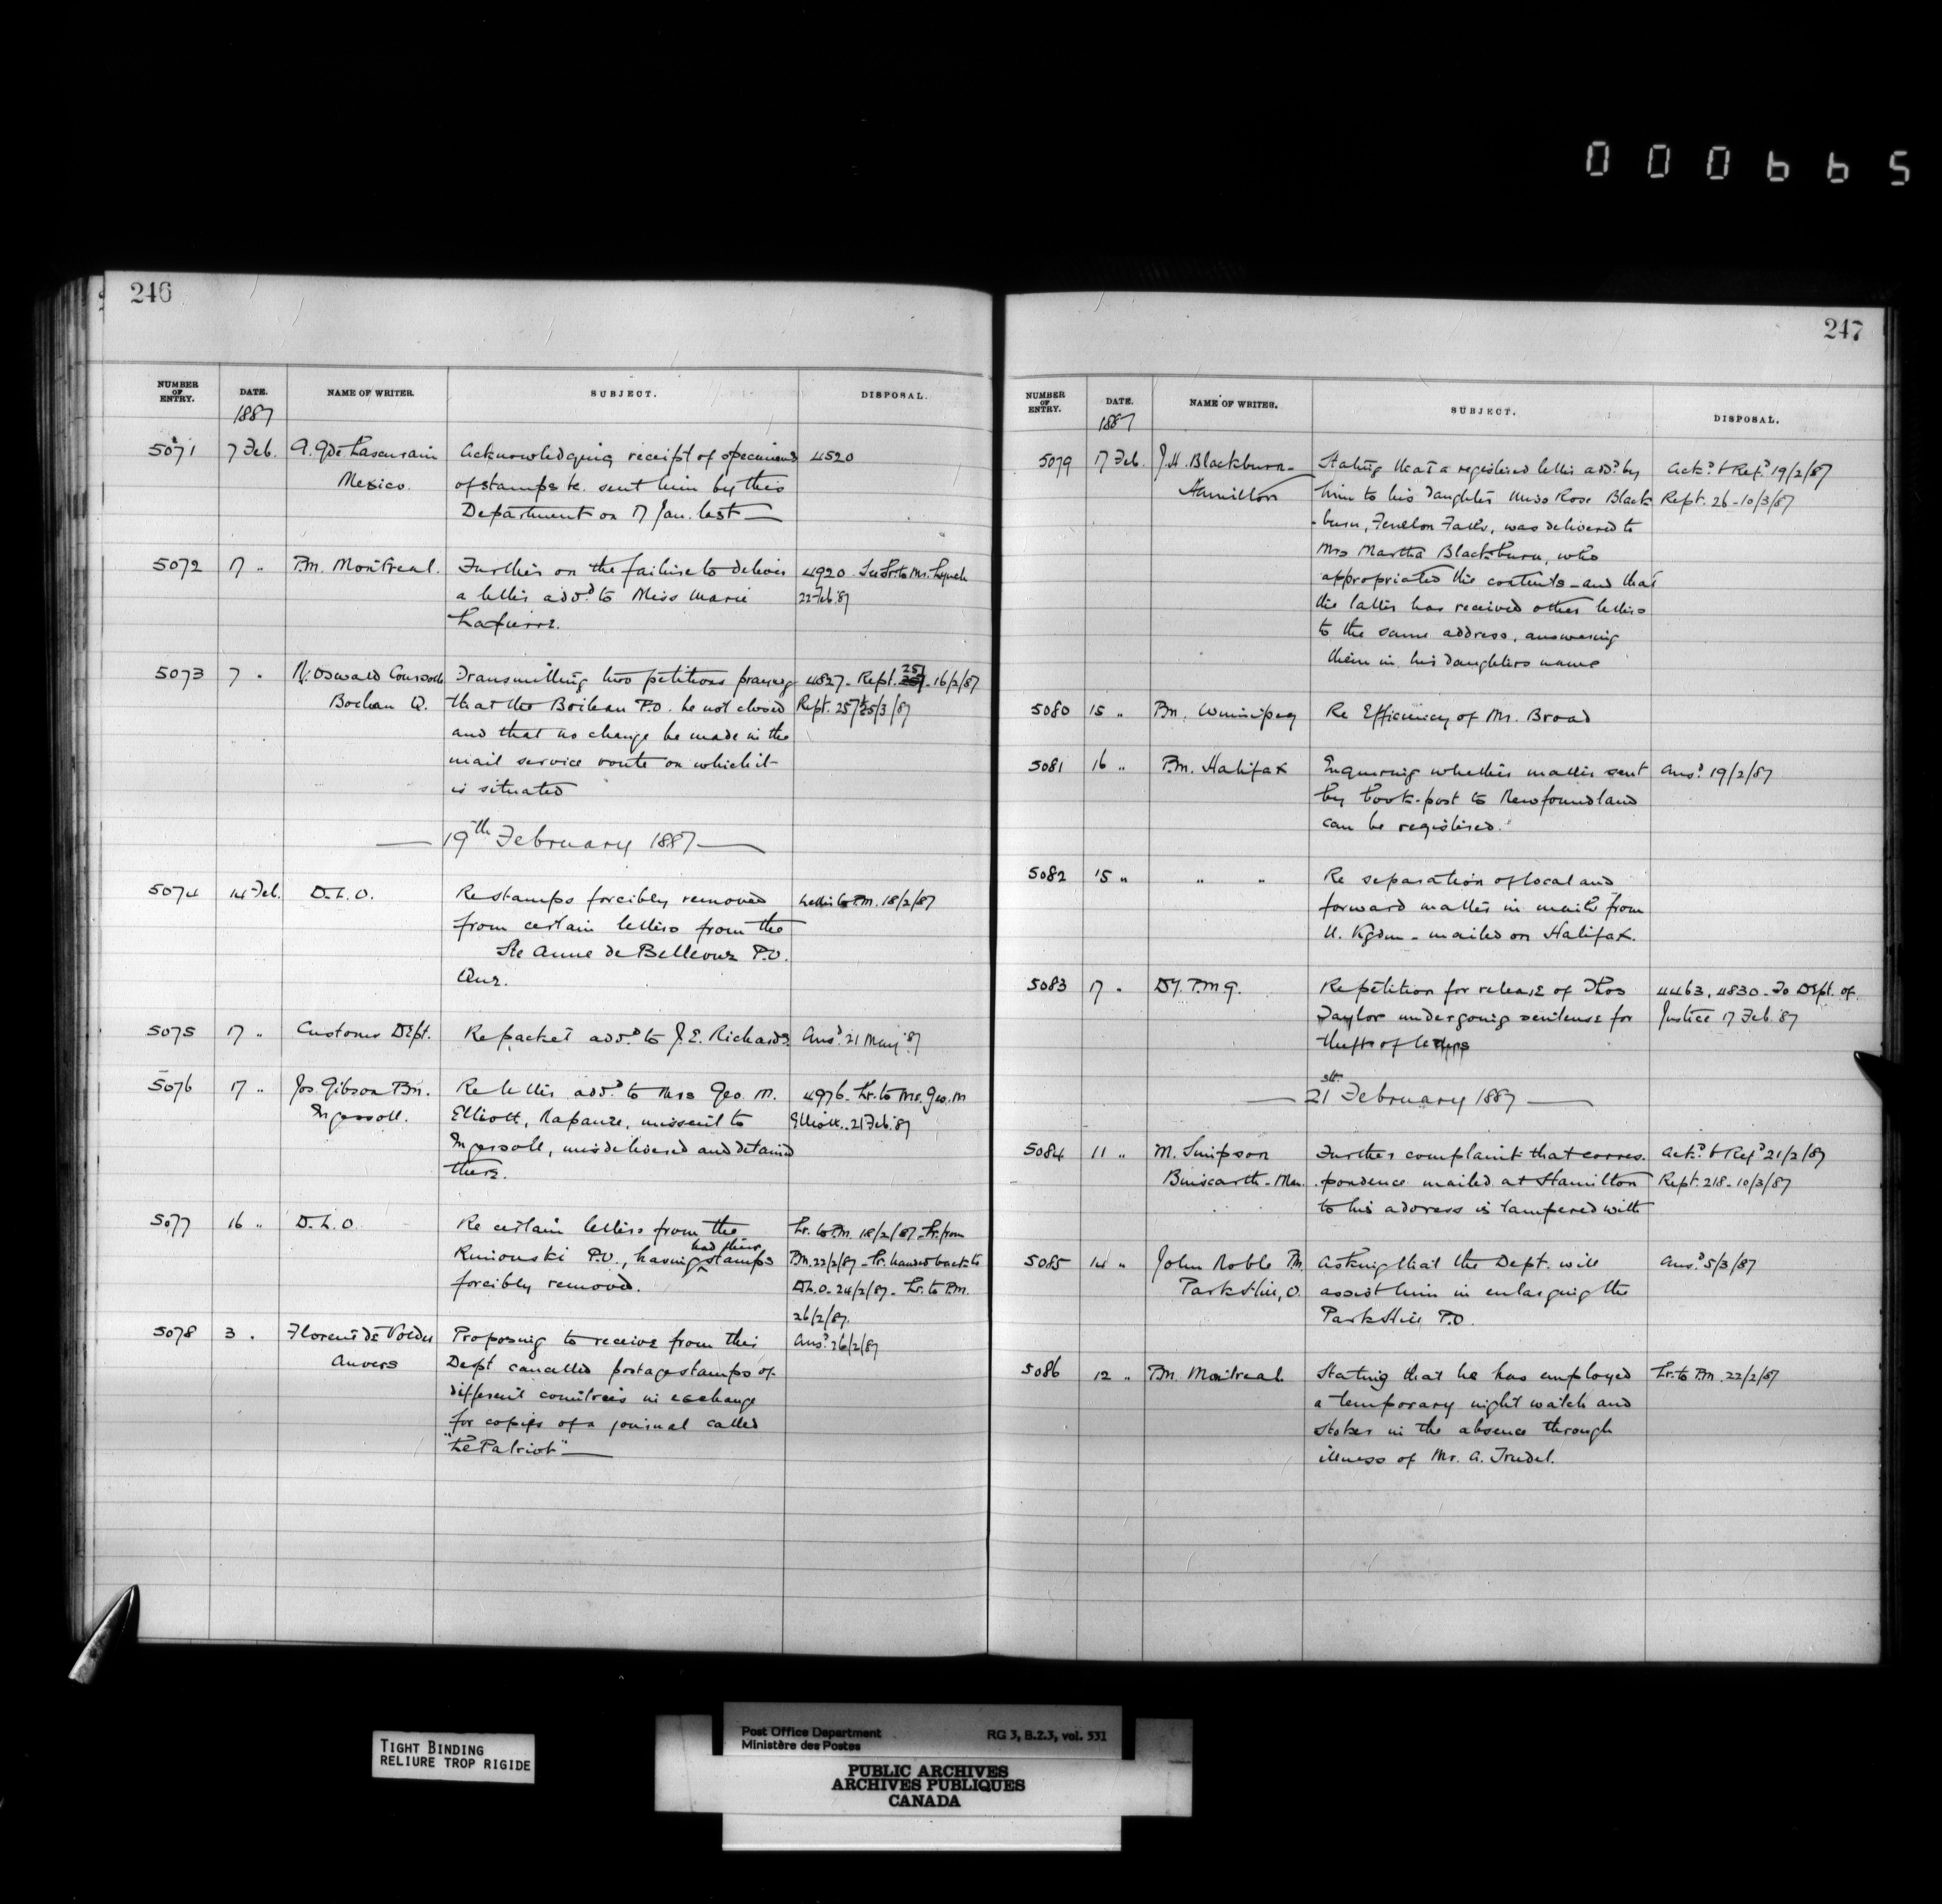 000665
246
NUMBER OF ENTRY. DATE. NAME OF WRITER. SUBJECT. DISPOSAL.
1887
5071 7 Feb. A. G de Lascurain Acknowledging receipt of specimens 4520
Mexico. of stamps &c. sent him by this
Department on 17 Jan. last
5072 17 " P.M. Montreal. Further on the failure to deliver 4920. Lr to Mr. Lynch
a letter add.d to Miss Marie 22 Feb. 87
Lapierre.
5073 7 " N. Oswald Transmitting two petitions praying 4827. Rept. 257. 16/2/87
Boileau Q. that the Boileau P.O. be not closed Rept. 257 25/3/87
and that no change be made in the
mail service route on which it
is situated
19th February 1887
5074 14 Feb. D.L.O. Re stamps forcibly removed Letter to P.M. 18/2/87
from certain letters from the
Ste Anne de Bellevue P.O.
Que.
5075 17 " Customs Dept. Re packet add.d to J. E. Richards Ans.d 21 May '87
5076 17 " Jos. Gibson P.M. Re letter add.d to Mrs Geo. M. 4976. Lr. to Mr. Geo. M
Ingersoll. Elliott, Napanee, missent to Elliott. 21 Feb. 87
Ingersoll, misdelivered and detained
there.
5077 16 " D.L.O. Re certain letters from the Lr. to P.M. 18/2/87. Lr. from
Rimouski P.O., having had their stamps P.M. 22/2/87. Lr. handed back to
forcibly removed. D.L.O. 24/2/87. Lr. to P.M.
26/2/87.
5078 3 " Florent de Proposing to receive from this Ans.d 26/2/87
Anvers Dept cancelled postage stamps of
different countries in exchange
for copies of a journal called
"Le Patriot"
247
NUMBER OF ENTRY. DATE. NAME OF WRITER. SUBJECT. DISPOSAL.
1887
5079 17 Feb. J. H. Blackburn Stating that a registered letter add.d by Ack.d & Ref.d 19/2/87
Hamilton him to his daughter Miss Rose Black- Rept. 26 - 10/3/87
-burn, Fenelon Falls, was delivered to
Mrs Martha Blackburn, who
appropriated the contents - and that
the latter has received other letters
to the same address, answering
them in his daughters name
5080 15 " P.M. Winnipeg Re Efficiency of Mr. Broad
5081 16 " P.M. Halifax Enquiring whether matter sent Ans.d 19/2/87
by book-post to Newfoundland
can be registered.
5082 15 " " " Re separation of local and
forward matter in mails from
U. Kgdm - mailed on Halifax.
5083 17 " Dy. P.M.G. Re petition for release of Thos 4463, 4830. To Dept. of
Taylor undergoing sentence for Justice 17 Feb. '87
theft of letters
21st February 1887
5084 11 " M. Simpson Further complaint that corres- Ack.d & Ref.d 21/2/87
Binscarth - Man. pondence mailed at Hamilton Rept. 218 - 10/3/87
to his address is tampered with
5085 14 " John Noble PM Asking that the Dept. will Ans.d 5/3/87
Parkhill, O. assist him in enlarging the
Parkhill P.O.
5086 12 " P.M. Montreal Stating that he has employed Lr. to P.M. 22/2/87
a temporary night watch and
stoker in the absence through
illness of Mr. A. Trudel.
TIGHT BINDING
RELIURE TROP RIGIDE
Post Office Department RG 3, B.2.3, vol. 531
Ministère des Postes
PUBLIC ARCHIVES
ARCHIVES PUBLIQUES
CANADA